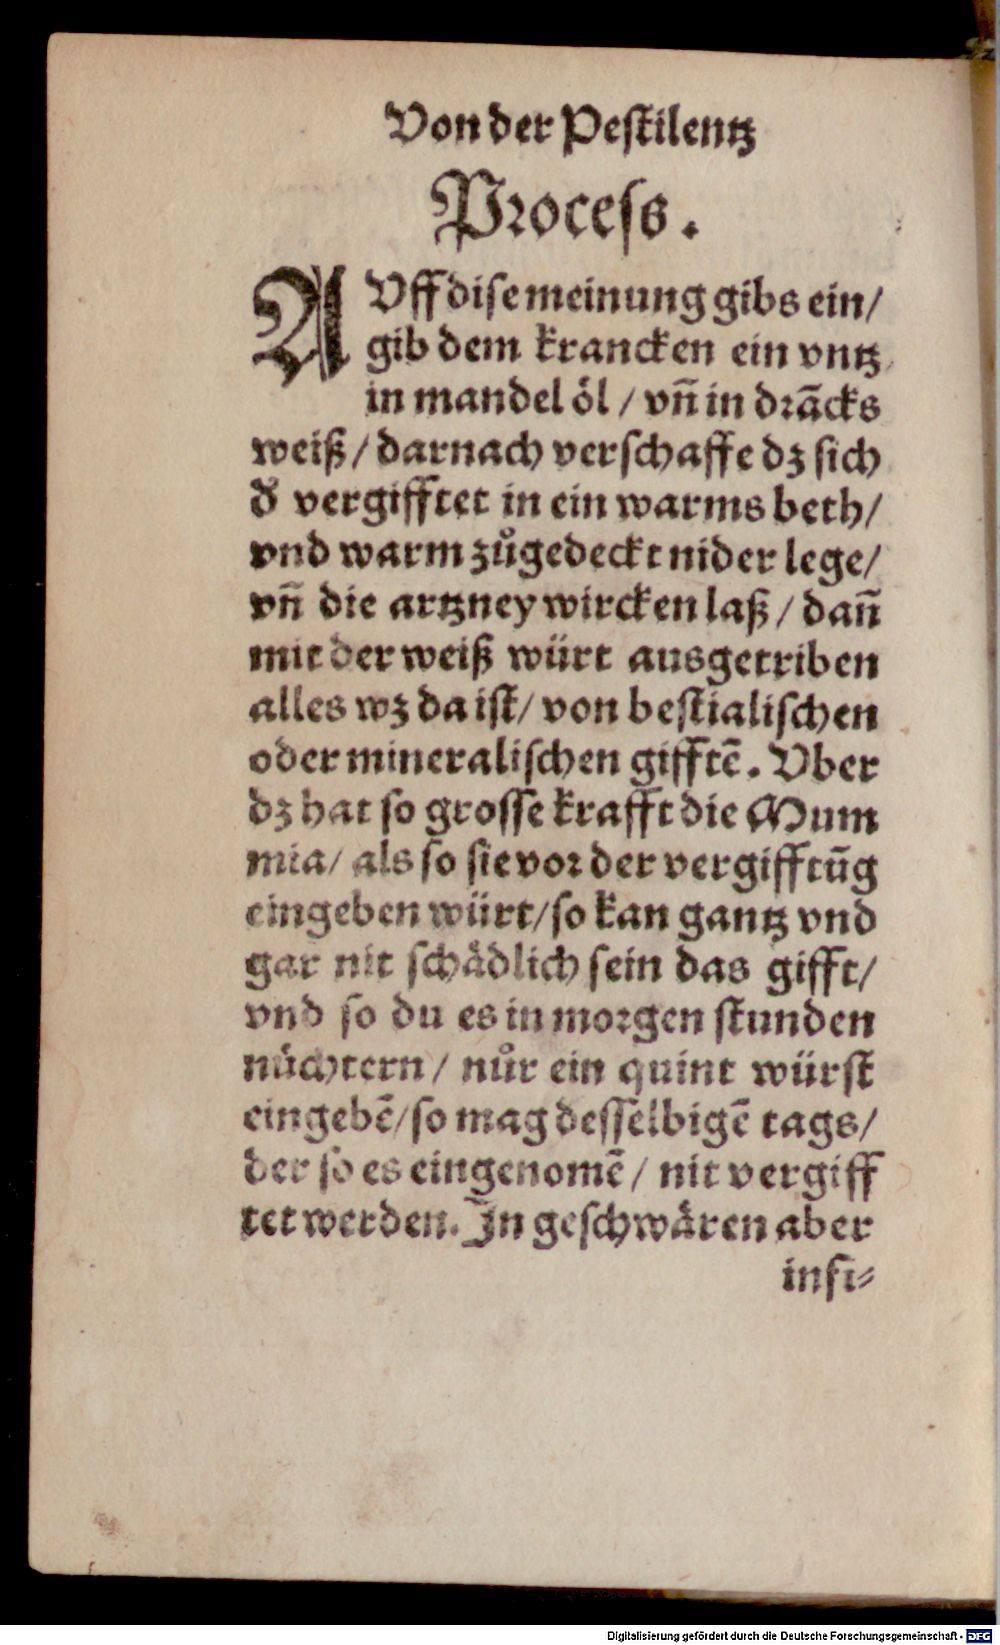 Von der Pestilentz
Process.
AVff dise meinung gibs ein/
gib dem krancken ein vntz
in mandel öl / vñ in drãcks
weiß / darnach verschaffe dz sich
d̕ vergifftet in ein warms beth/
vnd warm zůgedeckt nider lege/
vñ die artzney wircken laß / dañ
mit der weiß würt ausgetriben
alles wz da ist/ von bestialischen
oder mineralischen gifftẽ. Vber
dz hat so grosse krafft die Mum
mia/ als so sie vor der vergifftũg
eingeben würt/so kan gantz vnd
gar nit schådlich sein das gifft/
vnd so du es in morgen stunden
nüchtern / nůr ein quint würst
eingebẽ/so mag desselbigẽ tags/
der so es eingenomẽ / nit vergiff
tet werden. In geschwåren aber
infi⸗
Digitalisierung gefördert durch die Deutsche Forschungsgemeinschaft - DFG